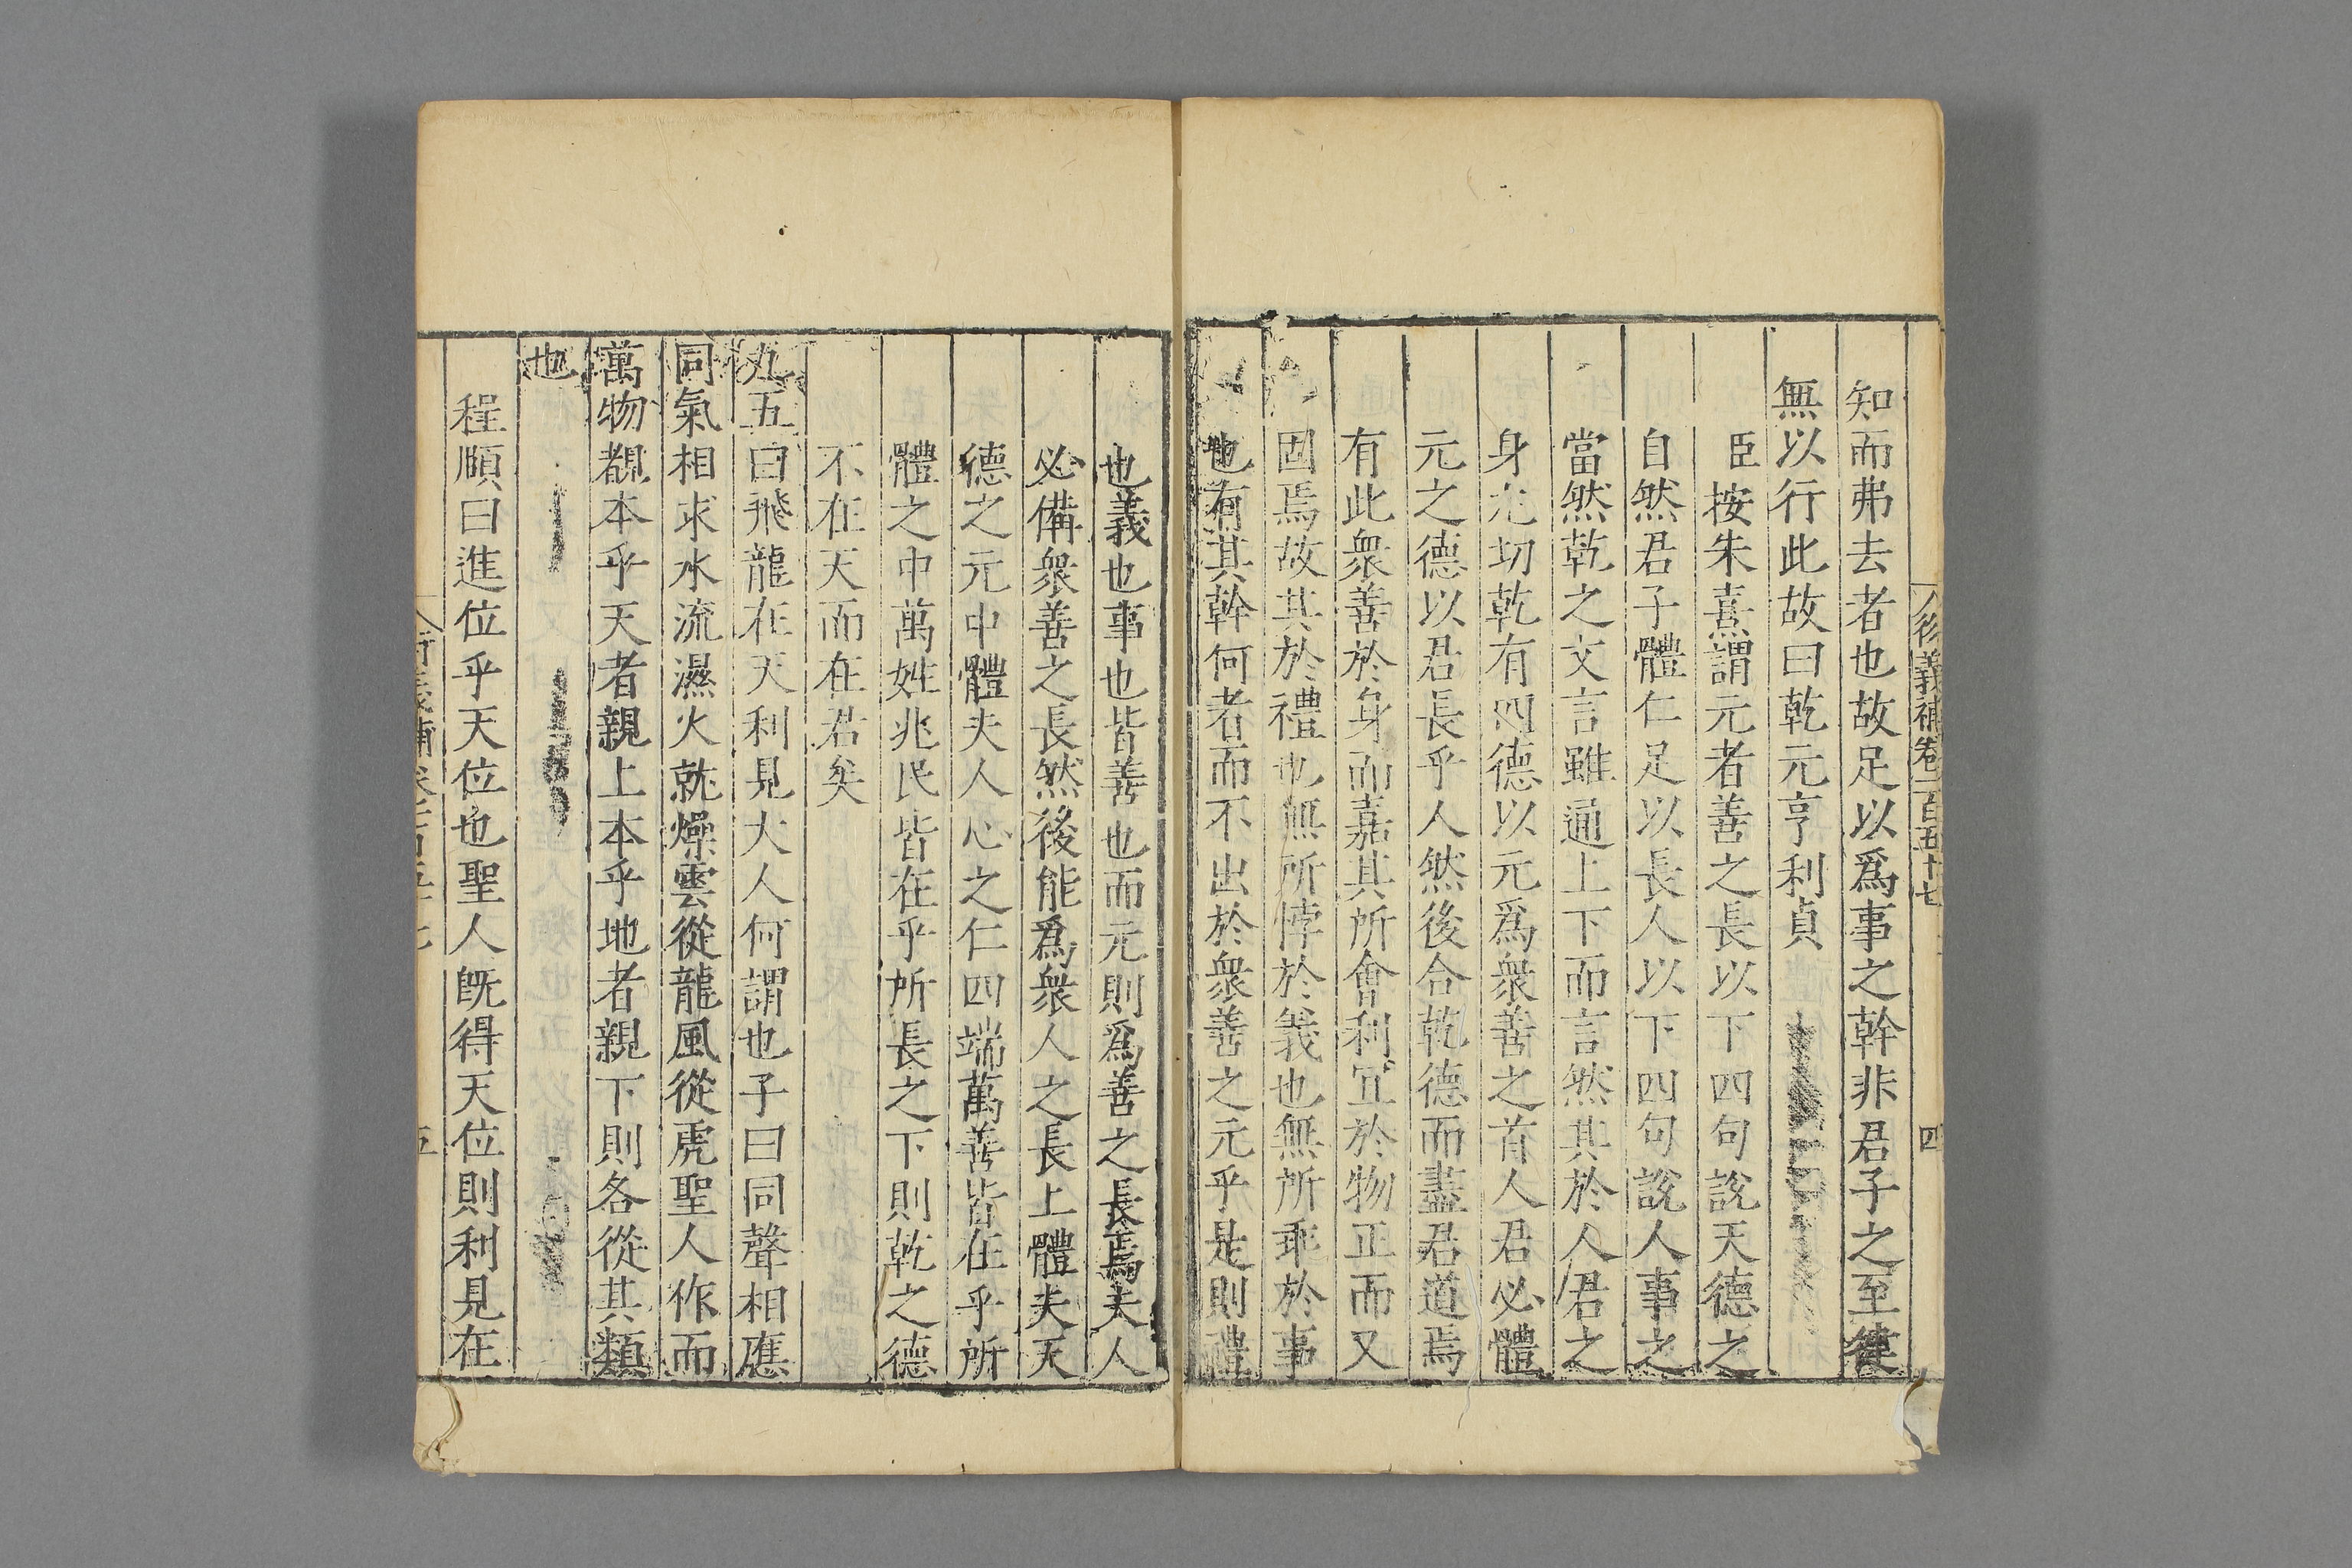 知而弗去者也故足以爲事之幹非君子之至健
無以行此故曰乾元亨利貞
臣按朱熹謂元者善之長以下四句說天德之
自然君子體仁足以長人以下四句說人事之
當然乾之文言雖通上下而言然其於人君之
身尤切乾有四德以元爲衆善之首人君必體
元之德以君長乎人然後合乾德而盡君道焉
有此衆善於身而嘉其所會利冝於物正而又
固焉故其於禮也無所悖於義也無所乖於事
也有其幹何者而不出於衆善之元乎是則禮
也義也事也皆善也而元則爲善之長焉夫人
必備衆善之長然後能爲衆人之長上體夫天
德之元中體夫人心之仁四端萬善皆在乎所
體之中萬姓兆民皆在乎所長之下則乾之德
不在天而在君矣
九五曰飛龍在天利見大人何謂也子曰同聲相應
同氣相求水流濕火就燥雲從龍風從虎聖人作而
萬物覩本乎天者親上本乎地者親下則各從其類
也
程頤曰進位乎天位也聖人旣得天位則利見在
衍義補卷一百五十七
四
五